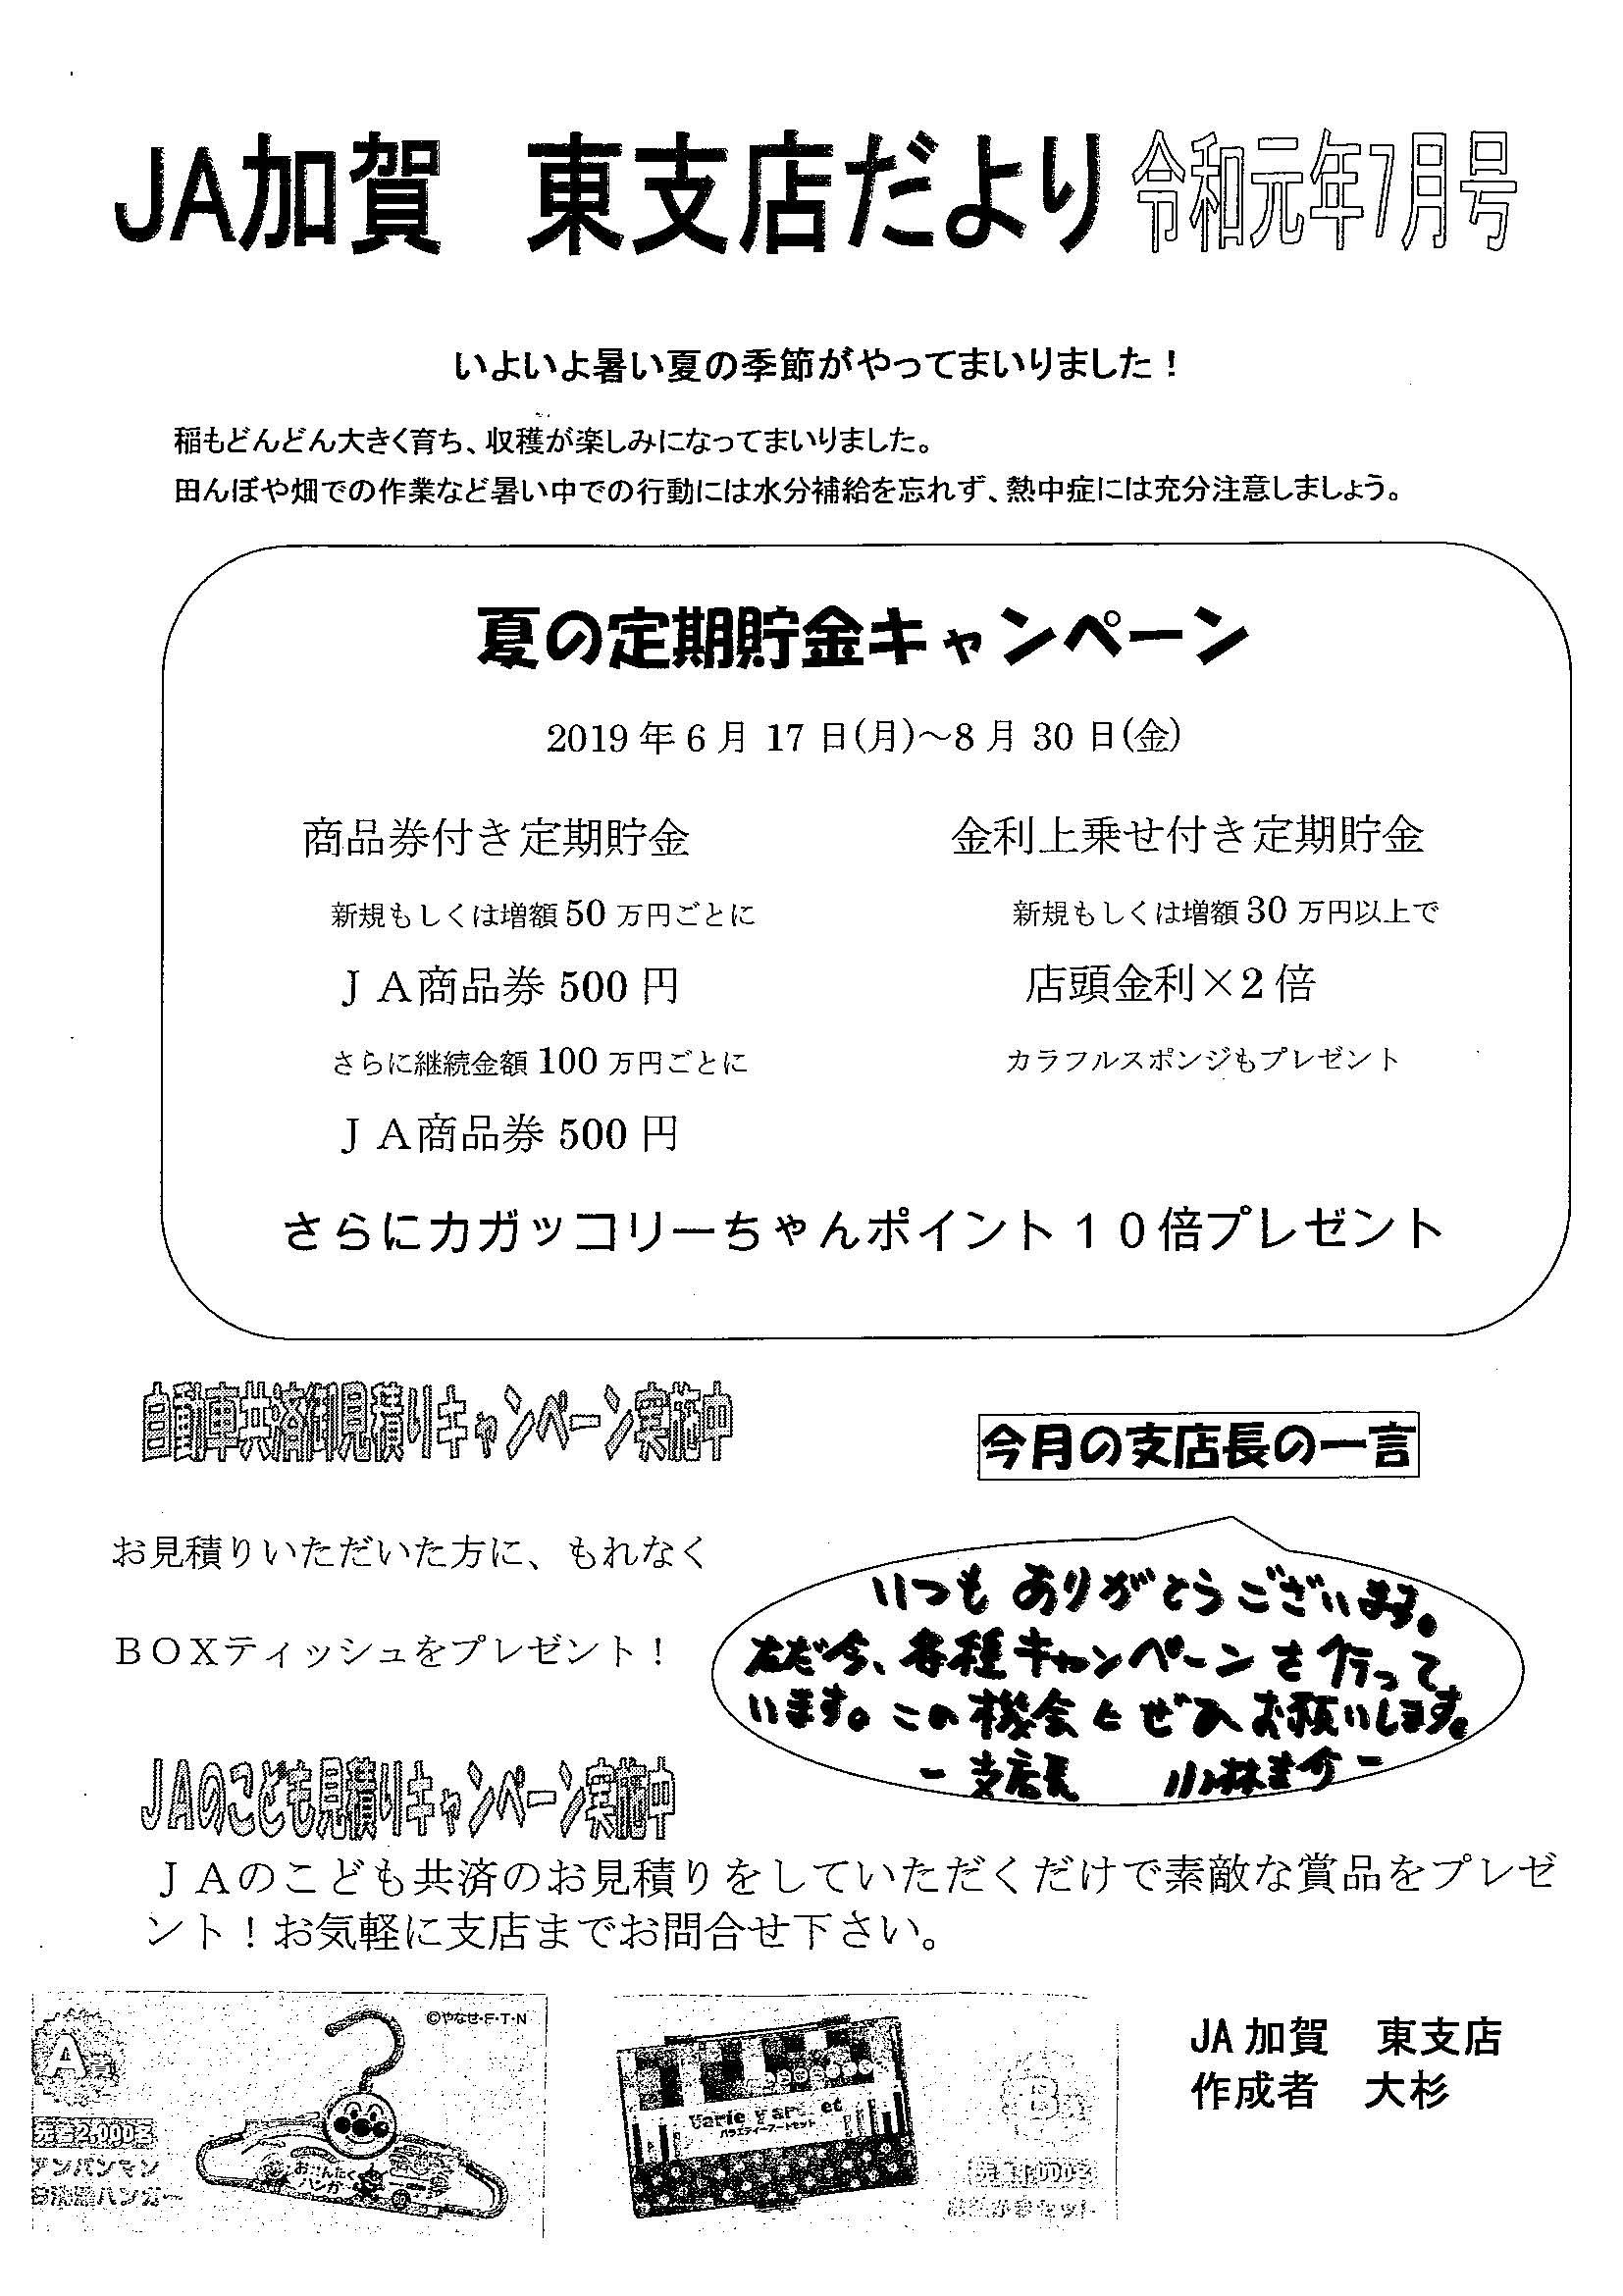 JA加賀　東支店だより 令和元年7月号
いよいよ暑い夏の季節がやってまいりました！
稲もどんどん大きく育ち、収穫が楽しみになってまいりました。
田んぼや畑での作業など暑い中での行動には水分補給を忘れず、熱中症には充分注意しましょう。
夏の定期貯金キャンペーン
2019年6月17日(月)～8月30日(金)
商品券付き定期貯金
新規もしくは増額50万円ごとに
ＪＡ商品券500円
さらに継続金額100万円ごとに
ＪＡ商品券500円
金利上乗せ付き定期貯金
新規もしくは増額30万円以上で
店頭金利×2倍
カラフルスポンジもプレゼント
さらにカガッコリーちゃんポイント１０倍プレゼント
自動車共済御見積りキャンペーン実施中
お見積りいただいた方に、もれなく
ＢＯＸティッシュをプレゼント！
今月の支店長の一言
いつもありがとうございます。
ただ今、各種キャンペーンを行って
います。この機会にぜひお願いします。
－支店長　小林
JAのこども見積りキャンペーン実施中
ＪＡのこども共済のお見積りをしていただくだけで素敵な賞品をプレゼ
ント！お気軽に支店までお問合せ下さい。
A賞
©やなせ・F・T・N
先着2,000名
アンパンマン
お洗濯ハンガー
おせんたく
ハンガー
バラエティーアートセット
B
先着1,000名
おえかきセット
JA加賀　東支店
作成者　大杉